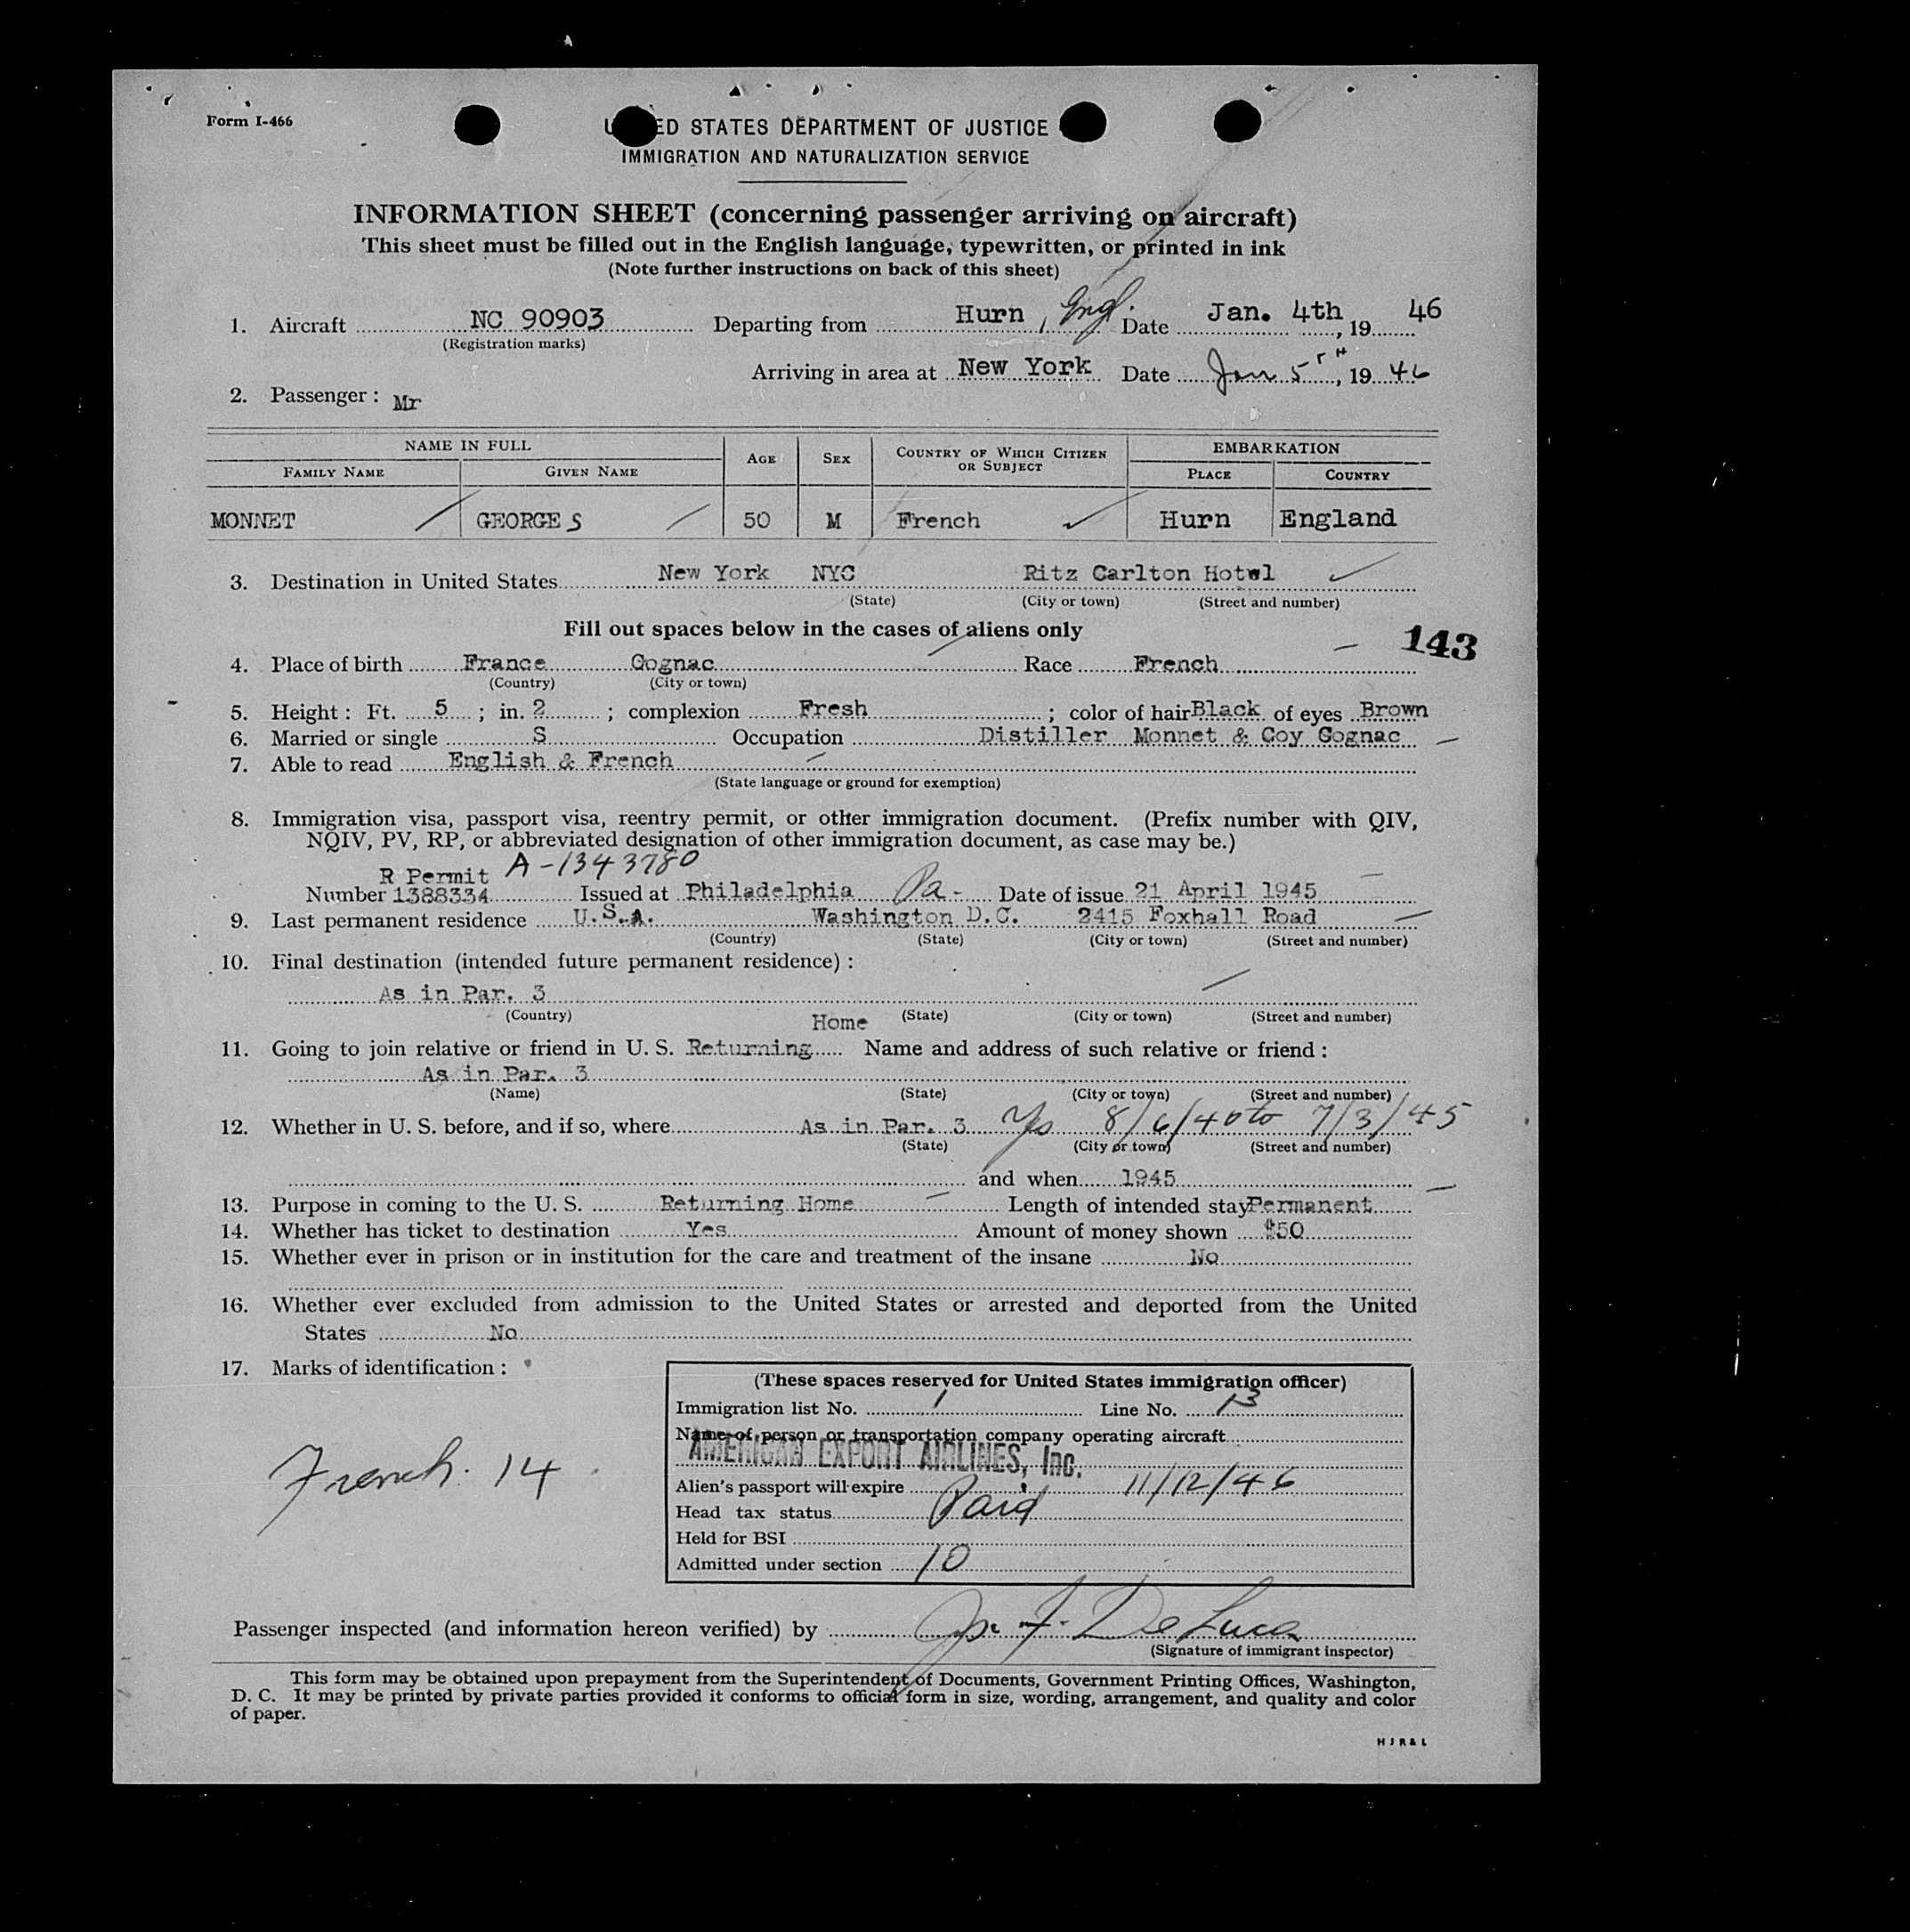 Form I-466
UNITED STATES DEPARTMENT OF JUSTICE
IMMIGRATION AND NATURALIZATION SERVICE
INFORMATION SHEET (concerning passenger arriving on aircraft)
This sheet must be filled out in the English language, typewritten, or printed in ink
(Note further instructions on back of this sheet)
1. Aircraft NC 90903 Departing from Hurn, Engl. Date Jan. 4th, 19 46
(Registration marks)
Arriving in area at New York Date Jan 5TH, 19 46
2. Passenger: Mr
NAME IN FULL AGE SEX COUNTRY OF WHICH CITIZEN OR SUBJECT EMBARKATION
FAMILY NAME GIVEN NAME PLACE COUNTRY
MONNET GEORGES 50 M French Hurn England
3. Destination in United States New York NYC Ritz Carlton Hotwl
(State) (City or town) (Street and number)
Fill out spaces below in the cases of aliens only
143
4. Place of birth France Cognac Race French
(Country) (City or town)
5. Height: Ft. 5; in. 2; complexion Fresh; color of hair Black of eyes Brown
6. Married or single S Occupation Distiller Monnet & Coy Cognac
7. Able to read English & French
(State language or ground for exemption)
8. Immigration visa, passport visa, reentry permit, or other immigration document. (Prefix number with QIV,
NQIV, PV, RP, or abbreviated designation of other immigration document, as case may be.)
R Permit A-1343780
Number 1388334 Issued at Philadelphia Pa- Date of issue 21 April 1945
9. Last permanent residence U.S.A. Washington D.C. 2415 Foxhall Road
(Country) (State) (City or town) (Street and number)
10. Final destination (intended future permanent residence):
As in Par. 3
(Country) (State) (City or town) (Street and number)
Home
11. Going to join relative or friend in U. S. Returning Name and address of such relative or friend:
As in Par. 3
(Name) (State) (City or town) (Street and number)
12. Whether in U. S. before, and if so, where As in Par. 3 Yes 8/6/40 to 7/3/45
(State) (City or town) (Street and number)
and when 1945
13. Purpose in coming to the U. S. Returning Home Length of intended stay Permanent
14. Whether has ticket to destination Yes Amount of money shown $50
15. Whether ever in prison or in institution for the care and treatment of the insane No
16. Whether ever excluded from admission to the United States or arrested and deported from the United
States No
17. Marks of identification:
French. 14
(These spaces reserved for United States immigration officer)
Immigration list No. 1 Line No. 13
Name of person or transportation company operating aircraft
AMERICAN EXPORT AIRLINES, Inc.
Alien's passport will expire 11/12/46
Head tax status Paid
Held for BSI
Admitted under section 10
Passenger inspected (and information hereon verified) by F. De Luca
(Signature of immigrant inspector)
This form may be obtained upon prepayment from the Superintendent of Documents, Government Printing Offices, Washington,
D. C. It may be printed by private parties provided it conforms to official form in size, wording, arrangement, and quality and color
of paper.
H J R & L